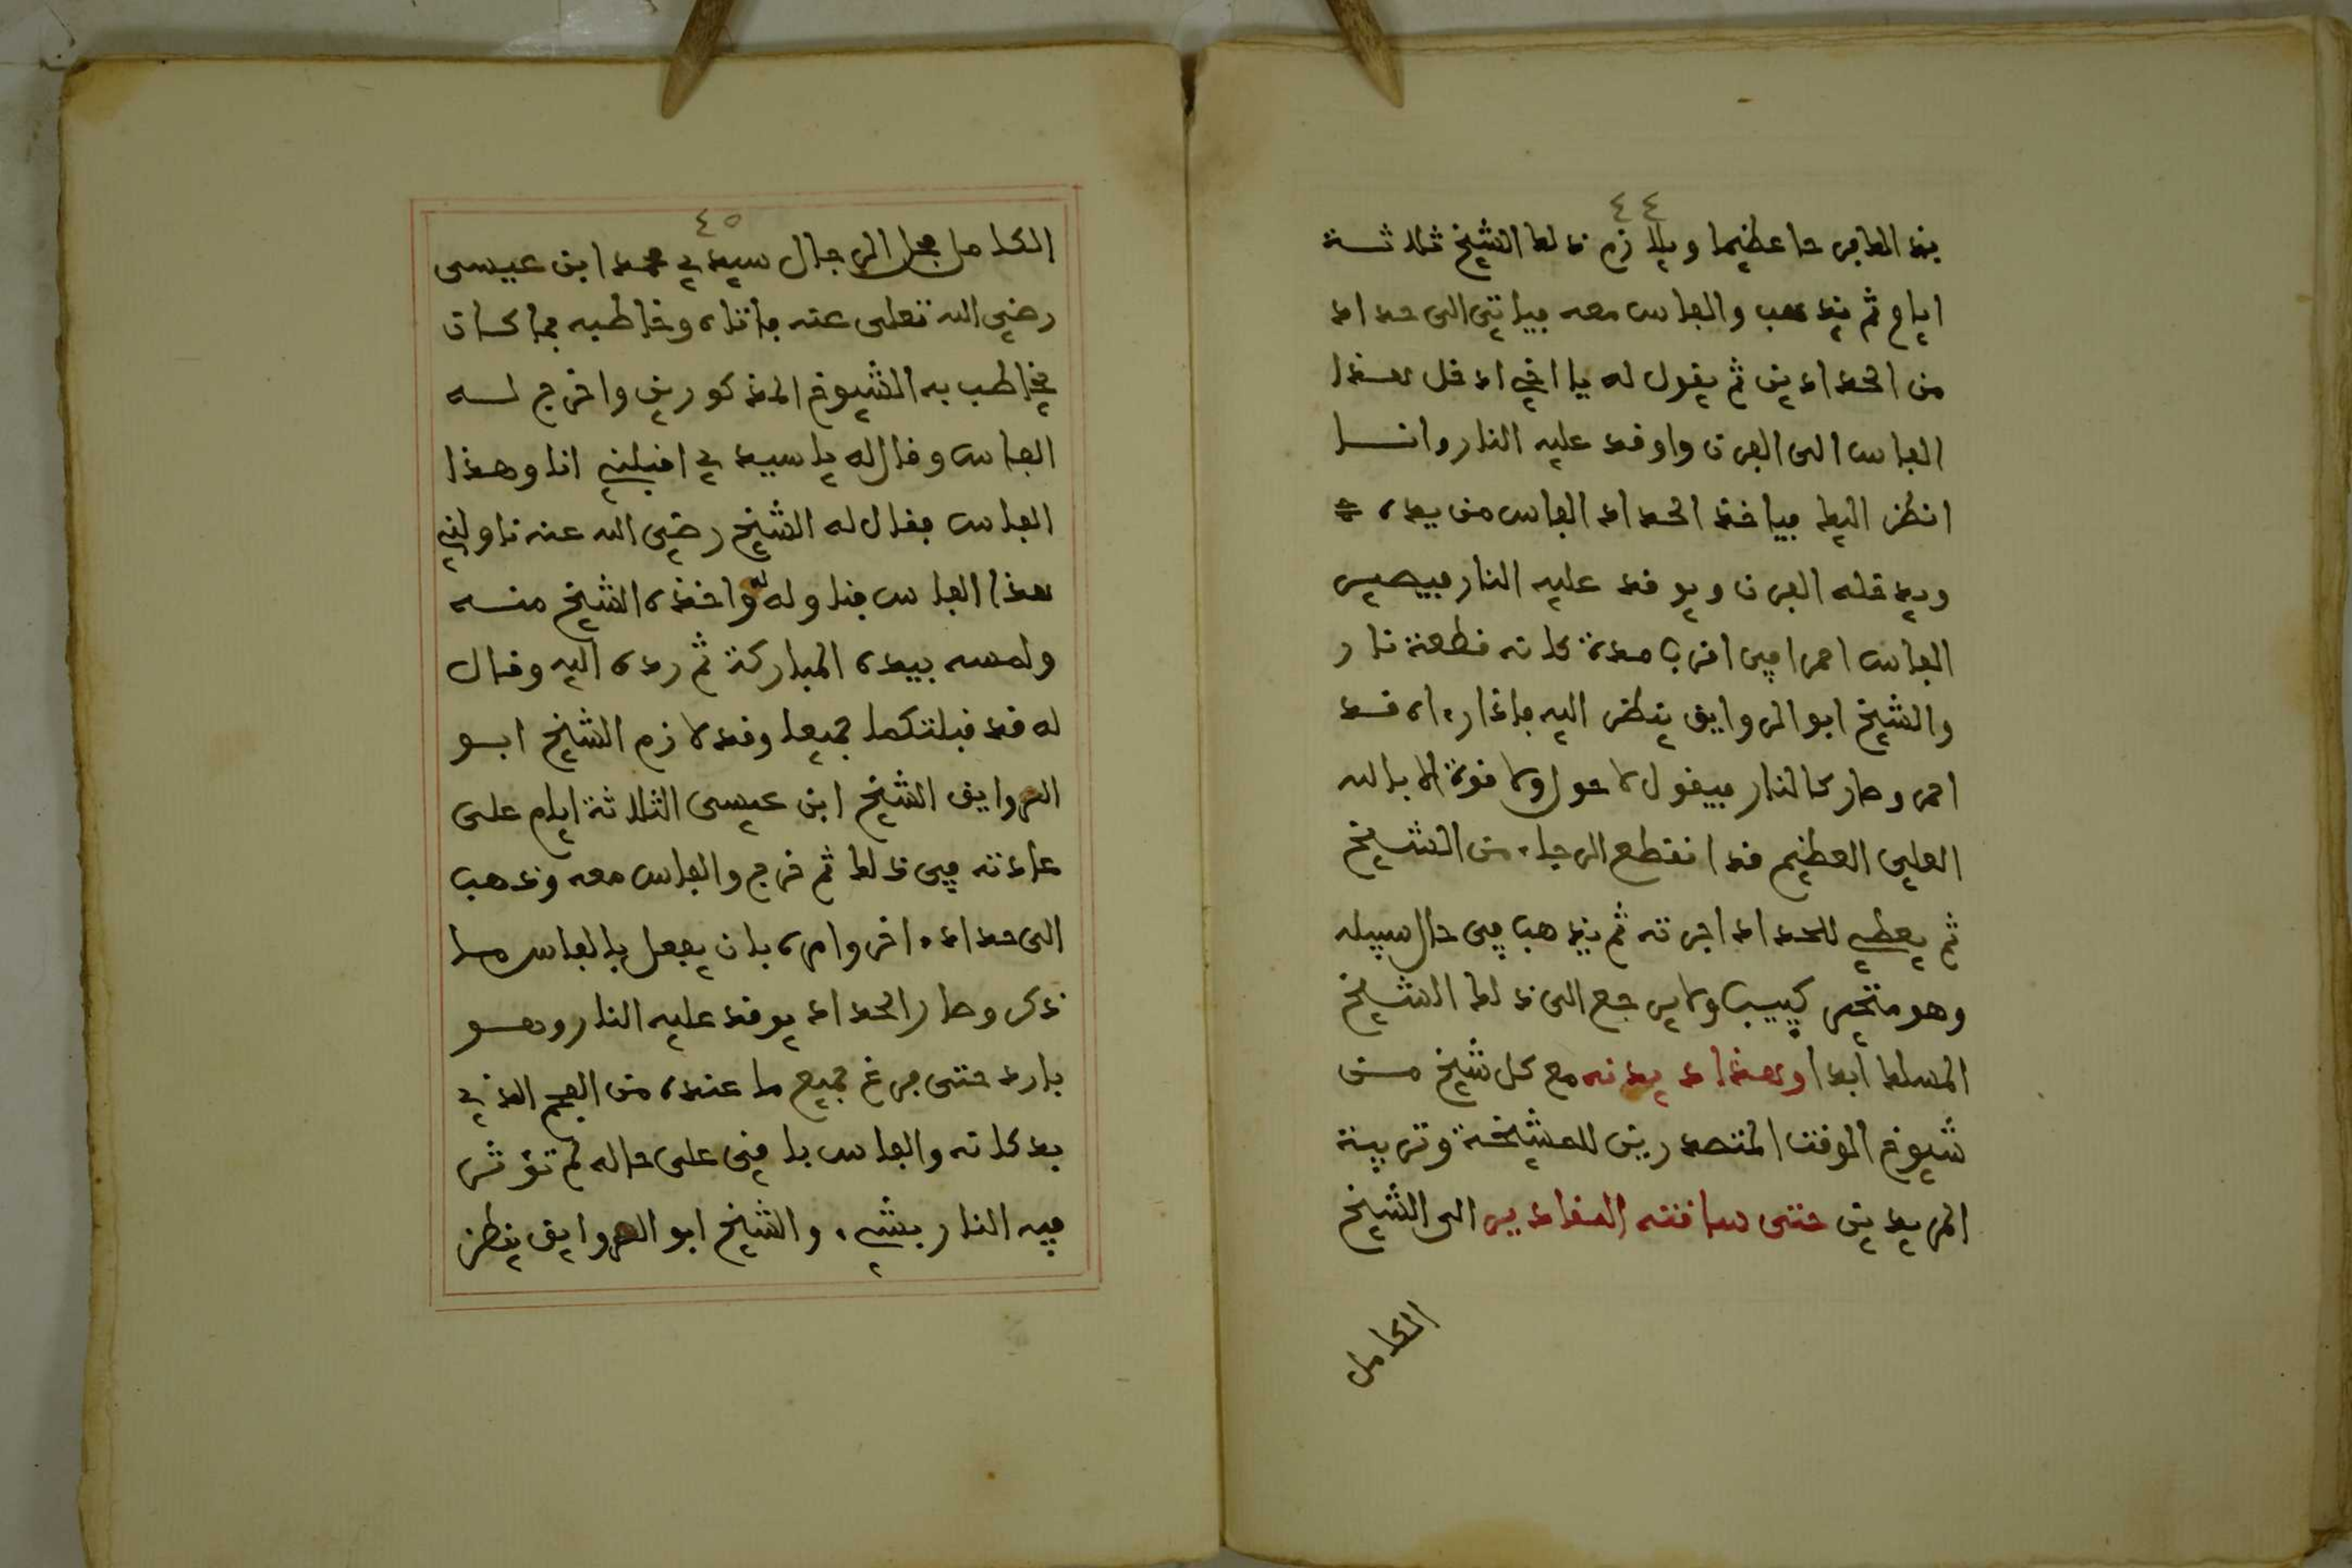 ٤٤
بذالك فرحا عظيما ويلازم ذلك الشيخ ثلاثة
ايام ثم يذهب والفاس معه فياتي الى حداد
من الحدادين ثم يقول له يا اخي ادخل هذا
الفاس الى الفرن واوقد عليه النار وانا
انظر اليك فياخذ الحداد الفاس من يده
ويدخله الفرن ويوقد عليه النار فيصير
الفاس احمرا في اقرب مدة كانه قطعة نار
والشيخ ابو الروايق ينظر اليه فاذا رءاه قد
احمر وصار كالنار فيقول لا حول ولا قوة الا بالله
العلي العظيم قد انقطع الرجاء من الشيخ
ثم يعطي للحداد اجرته ثم يذهب في حال سبيله
وهو متحير كييب ولا يرجع الى ذلك الشيخ
المسلك ابدا وهذا ديدنه مع كل شيخ من
شيوخ الوقت المتصدرين للمشيخة وتربية
المريدين حتى ساقته المقادير الى الشيخ
الكامل
٤٥
الكامل فحل الرجال سيدي محمد ابن عيسى
رضي الله تعلى عنه فاتاه وخاطبه بما كان
يخاطب به الشيوخ المذكورين واخرج له
الفاس وقال له يا سيدي اقبلني انا وهذا
الفاس فقال له الشيخ رضي الله عنه ناولني
هذا الفاس فناوله له واخذه الشيخ منه
ولمسه بيده المباركة ثم رده اليه وقال
له قد قبلتكما جميعا وقد لازم الشيخ ابو
الروايق الشيخ ابن عيسى الثلاثة ايام على
عادته في ذلك ثم خرج والفاس معه وذهب
الى حداد ءاخر وامره بان يفعل بالفاس ما
ذكر وصار الحداد يوقد عليه النار وهو
بارد حتى فرغ جميع ما عنده من الفحم الذي
بدكانه والفاس باقي على حاله لم تؤثر
فيه النار بشيء والشيخ ابو الروايق ينظر